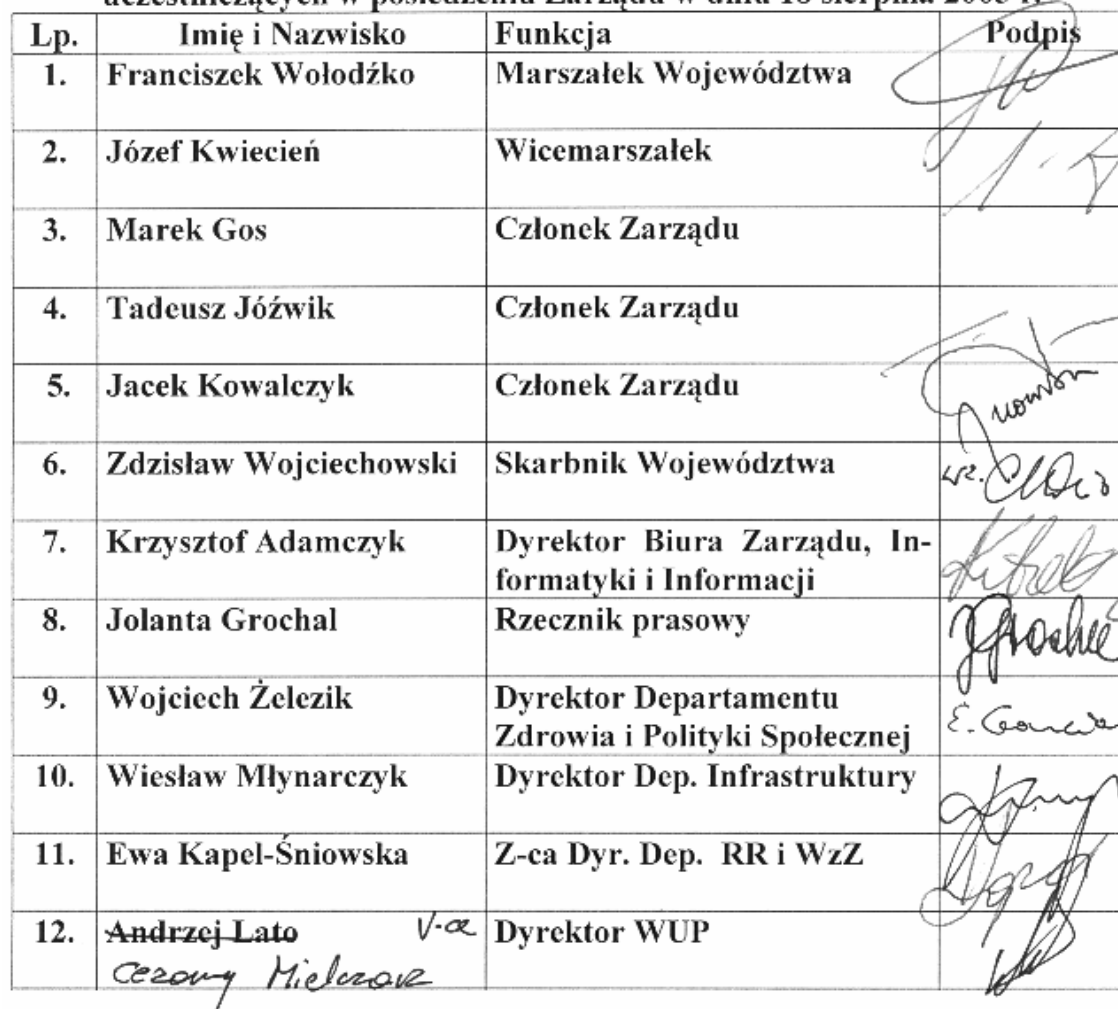 uczestniczących w posiedzeniu Zarządu w dniu 18 sierpnia
Lp. Imię i Nazwisko Funkcja Podpis
1. Franciszek Wołodźko Marszałek Województwa
2. Józef Kwiecień Wicemarszałek
3. Marek Gos Członek Zarządu
4. Tadeusz Jóźwik Członek Zarządu
5. Jacek Kowalczyk Członek Zarządu
6. Zdzisław Wojciechowski Skarbnik Województwa wz.
7. Krzysztof Adamczyk Dyrektor Biura Zarządu, In-
formatyki i Informacji
8. Jolanta Grochal Rzecznik prasowy
9. Wojciech Żelezik Dyrektor Departamentu
Zdrowia i Polityki Społecznej
10. Wiesław Młynarczyk Dyrektor Dep. Infrastruktury
11. Ewa Kapel-Śniowska Z-ca Dyr. Dep. RR i WzZ
12. Andrzej Lato V-ce Dyrektor WUP
Cezary Mielczarz